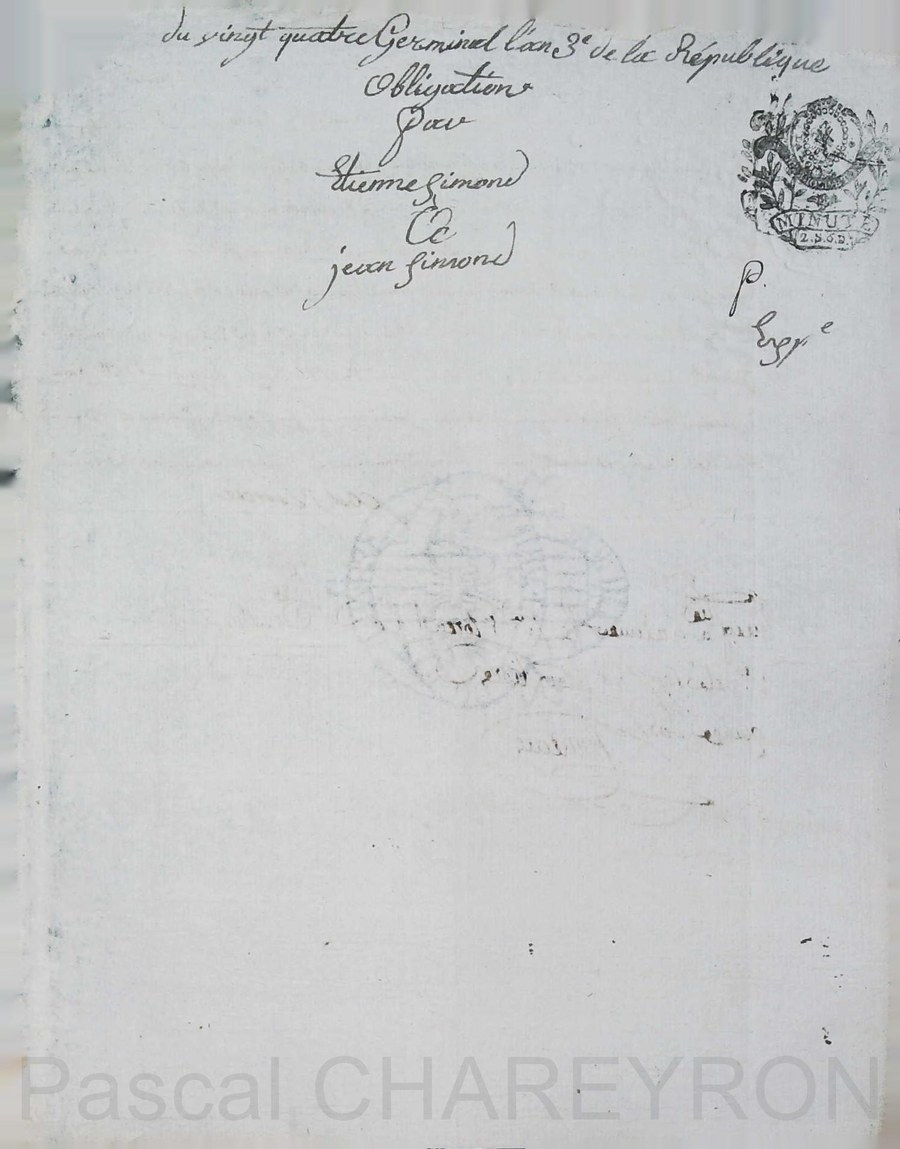 du vingt quatre Germinal l'an 3e de la République
Obligation
Par
Etienne Simond
A
jean Simond
MINUTE
2.S.6.D.
p.
Exp.e
Pascal CHAREYRON